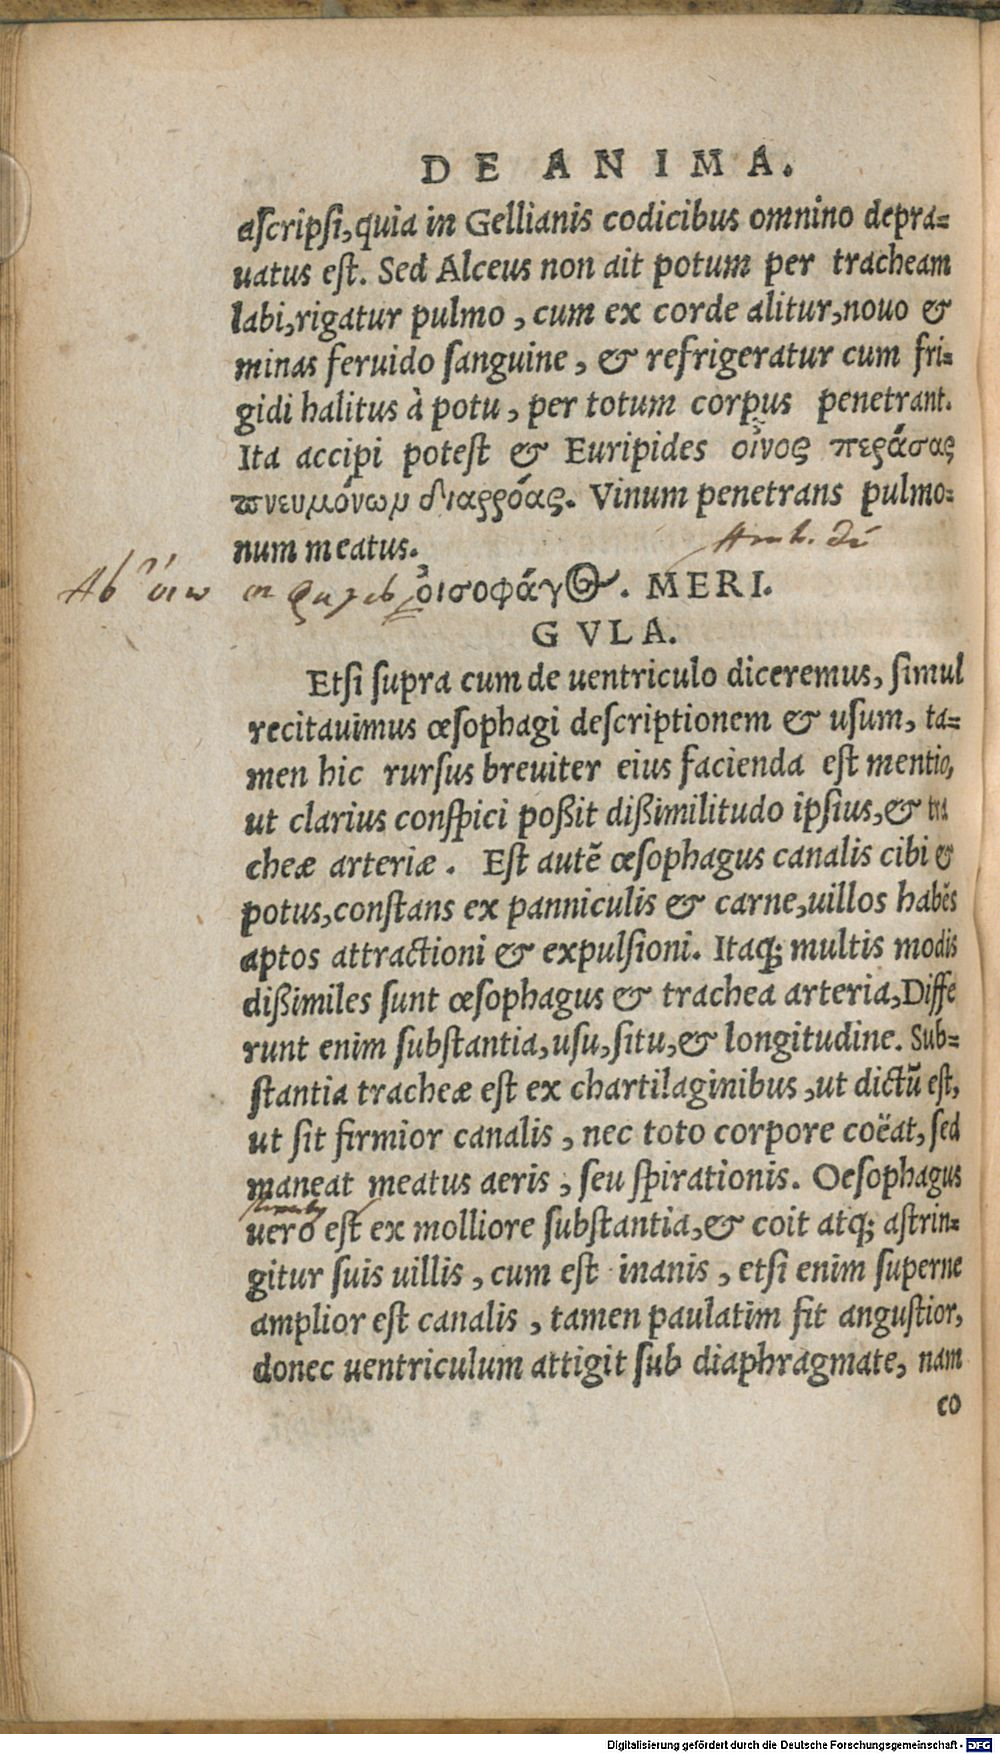 DE ANIMA.
aſcripſi, quia in Gellianis codicibus omnino depra-
uatus eſt. Sed Alceus non ait potum per tracheam
labi, rigatur pulmo, cum ex corde alitur, nouo &
minas feruido ſanguine, & refrigeratur cum fri-
gidi halitus à potu, per totum corpus penetrant.
Ita accipi poteſt & Euripides οἶνος περάσας
πνευμόνων διαρρόας. Vinum penetrans pulmo-
num meatus.
Arab.
Ab
ὀισοφάγος. MERI.
GVLA.
Etſi ſupra cum de uentriculo diceremus, ſimul
recitauimus œſophagi deſcriptionem & uſum, ta-
men hic rurſus breuiter eius facienda eſt mentio,
ut clarius conſpici poßit dißimilitudo ipſius, & tra
cheæ arteriæ. Eſt autē œſophagus canalis cibi &
potus, conſtans ex panniculis & carne, uillos habēs
aptos attractioni & expulſioni. Itaq; multis modis
dißimiles ſunt œſophagus & trachea arteria, Diffe
runt enim ſubſtantia, uſu, ſitu, & longitudine. Sub-
ſtantia tracheæ eſt ex chartilaginibus, ut dictū eſt,
ut ſit firmior canalis, nec toto corpore coëat, ſed
maneat meatus aeris, ſeu ſpirationis. Oeſophagus
uero eſt ex molliore ſubſtantia, & coit atq; aſtrin-
gitur ſuis uillis, cum eſt inanis, etſi enim ſuperne
amplior eſt canalis, tamen paulatim fit anguſtior,
donec uentriculum attigit ſub diaphragmate, nam
co
Digitalisierung gefördert durch die Deutsche Forschungsgemeinschaft - DFG